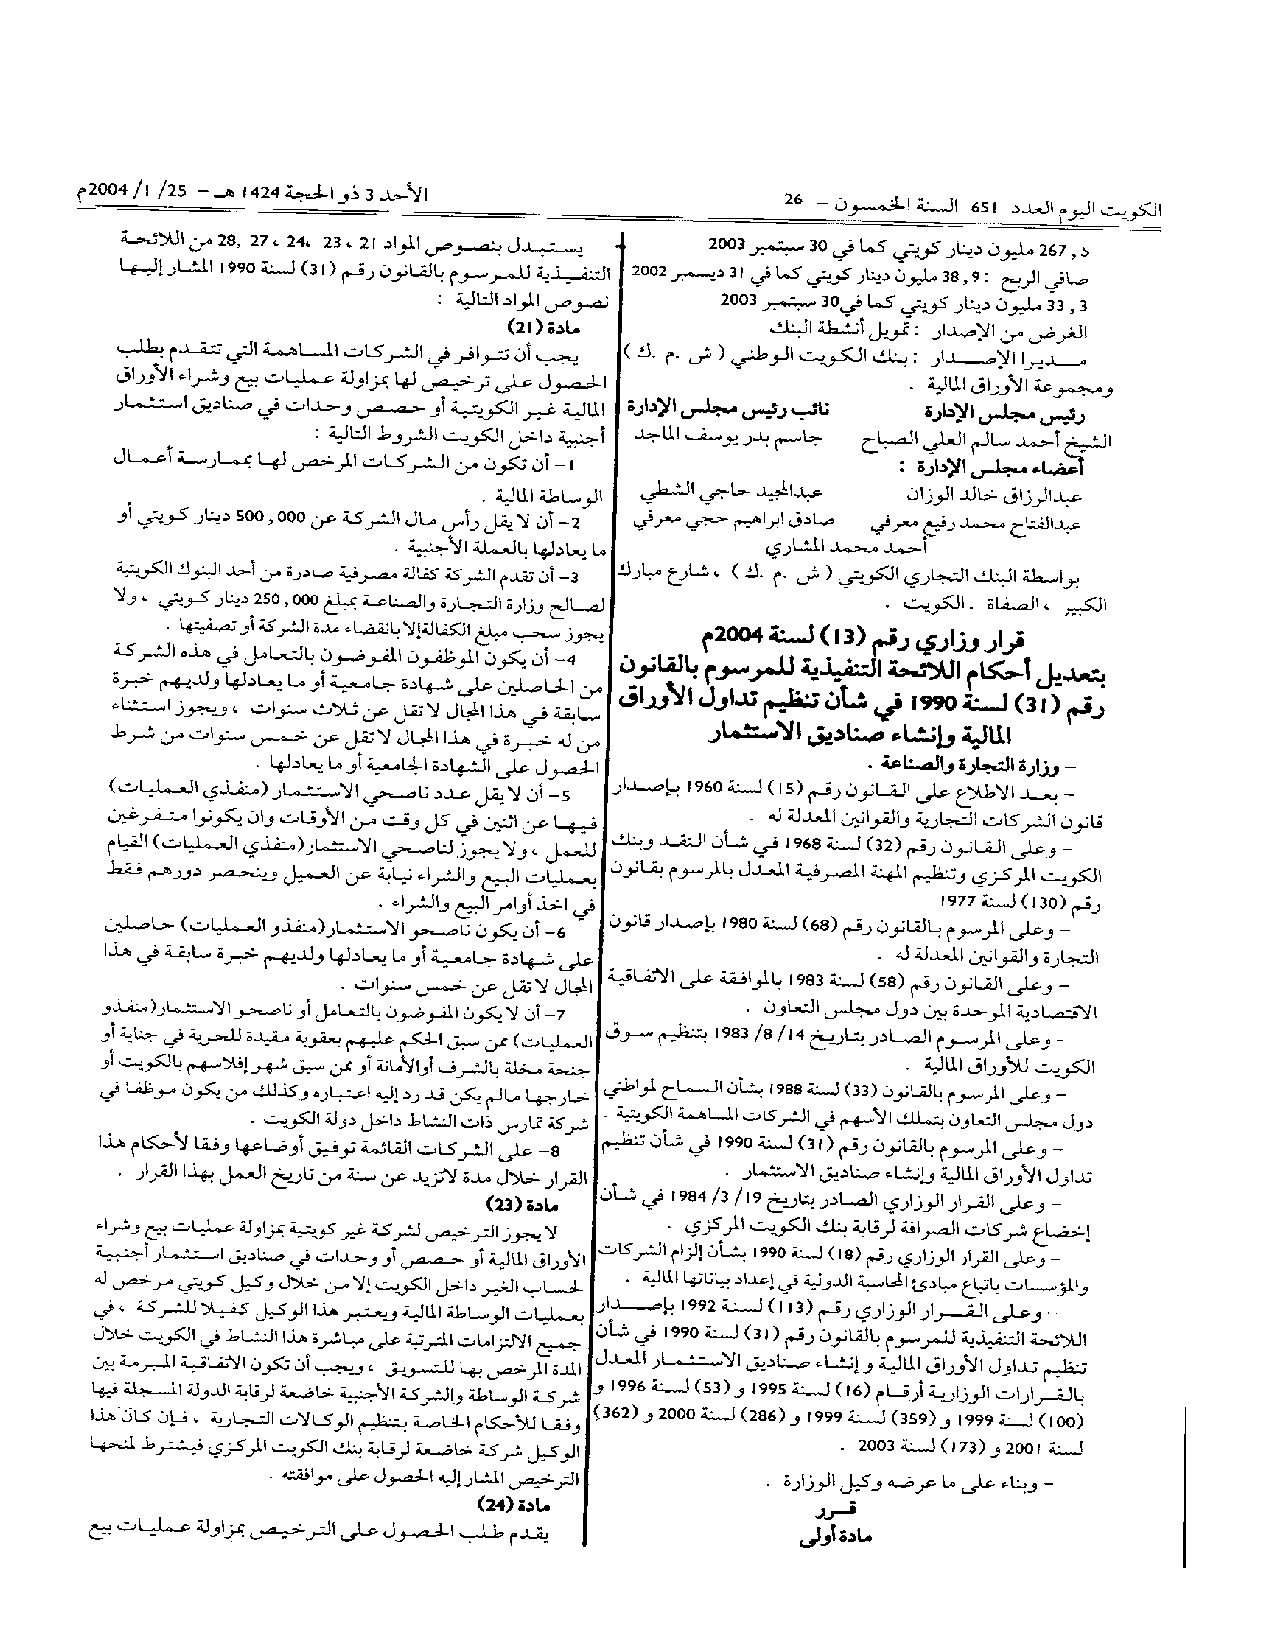 الكويت اليوم العدد 651 السنة الخمسون – 26
الأحد 3 ذو الحجة 1424 هـ – 25/ 1/ 2004م
د, 267 مليون دينار كويتي كما في 30 سبتمبر 2003
صافي الربح : 9, 38 مليون دينار كويتي كما في 31 ديسمبر 2002
3, 33 مليون دينار كويتي كما في30 سبتمبر 2003
الغرض من الإصدار : تمويل أنشطة البنك
مـديرا الإصـدار : بنك الكويت الوطني ( ش .م .ك )
ومجموعة الأوراق المالية .
رئيس مجلس الإدارة نائب رئيس مجلس الإدارة
الشيخ أحمد سالم العلي الصباح جاسم بدر يوسف الماجد
أعضاء مجلس الإدارة :
عبدالرزاق خالد الوزان عبدالمجيد حاجي الشطي
عبدالفتاح محمد رفيع معرفي صادق ابراهيم حجي معرفي
أحمد محمد المشاري
بواسطة البنك التجاري الكويتي ( ش .م .ك ) ، شارع مبارك
الكبير ، الصفاة .الكويت .
قرار وزاري رقم (13) لسنة 2004م
بتعديل أحكام اللائحة التنفيذية للمرسوم بالقانون
رقم (31) لسنة 1990 في شأن تنظيم تداول الأوراق
المالية وإنشاء صناديق الاستثمار
– وزارة التجارة والصناعة .
– بعد الاطلاع على القانون رقم (15) لسنة 1960 بإصدار
قانون الشركات التجارية والقوانين المعدلة له .
– وعلى القانون رقم (32) لسنة 1968 في شأن النقد وبنك
الكويت المركزي وتنظيم المهنة المصرفية المعدل بالمرسوم بقانون
رقم (130) لسنة 1977
– وعلى المرسوم بالقانون رقم (68) لسنة 1980 بإصدار قانون
التجارة والقوانين المعدلة له .
– وعلى القانون رقم (58) لسنة 1983 بالموافقة على الاتفاقية
الاقتصادية الموحدة بين دول مجلس التعاون .
– وعلى المرسوم الصادر بتاريخ 14/ 8/ 1983 بتنظيم سوق
الكويت للأوراق المالية .
– وعلى المرسوم بالقانون (33) لسنة 1988 بشأن السماح لمواطني
دول مجلس التعاون بتملك الأسهم في الشركات المساهمة الكويتية .
– وعلى المرسوم بالقانون رقم (31) لسنة 1990 في شأن تنظيم
تداول الأوراق المالية وإنشاء صناديق الاستثمار .
– وعلى القرار الوزاري الصادر بتاريخ 19/ 3/ 1984 في شأن
إخضاع شركات الصرافة لرقابة بنك الكويت المركزي .
– وعلى القرار الوزاري رقم (18) لسنة 1990 بشأن إلزام الشركات
والمؤسسات باتباع مبادئ المحاسبة الدولية في إعداد بياناتها المالية .
– وعلى القرار الوزاري رقم (113) لسنة 1992 بإصدار
اللائحة التنفيذية للمرسوم بالقانون رقم (31) لسنة 1990 في شأن
تنظيم تداول الأوراق المالية وإنشاء صناديق الاستثمار المعدل
بالقرارات الوزارية أرقام (16) لسنة 1995 و (53) لسنة 1996 و
(100) لسنة 1999 و (359) لسنة 1999 و (286) لسنة 2000 و (362)
لسنة 2001 و (173) لسنة 2003 .
– وبناء على ما عرضه وكيل الوزارة .
قـرر
مادة أولى
يستبدل بنصوص المواد 21 ، 23 ،24 ، 27 ,28 من اللائحة
التنفيذية للمرسوم بالقانون رقم (31) لسنة 1990 المشار إليها
نصوص المواد التالية :
مادة (21)
يجب أن تتوافر في الشركات المساهمة التي تتقدم بطلب
الحصول على ترخيص لها بمزاولة عمليات بيع وشراء الأوراق
المالية غير الكويتية أو حصص وحدات في صناديق استثمار
أجنبية داخل الكويت الشروط التالية :
1– أن تكون من الشركات المرخص لها بممارسة أعمال
الوساطة المالية .
2– أن لا يقل رأس مال الشركة عن 000, 500 دينار كويتي أو
ما يعادلها بالعملة الأجنبية .
3– أن تقدم الشركة كفالة مصرفية صادرة من أحد البنوك الكويتية
لصالح وزارة التجارة والصناعة بمبلغ 000, 250 دينار كويتي ، ولا
يجوز سحب مبلغ الكفالةإلا بانقضاء مدة الشركة أو تصفيتها .
4– أن يكون الموظفون المفوضون بالتعامل في هذه الشركة
من الحاصلين على شهادة جامعية أو ما يعادلها ولديهم خبرة
سابقة في هذا المجال لا تقل عن ثلاث سنوات ، ويجوز استثناء
من له خبرة في هذا المجال لا تقل عن خمس سنوات من شرط
الحصول على الشهادة الجامعية أو ما يعادلها .
5– أن لا يقل عدد ناصحي الاستثمار (منفذي العمليات)
فيها عن اثنين في كل وقت من الأوقات وان يكونوا متفرغين
للعمل ، ولا يجوز لناصحي الاستثمار(منفذي العمليات) القيام
بعمليات البيع والشراء نيابة عن العميل وينحصر دورهم فقط
في اخذ أوامر البيع والشراء .
6– أن يكون ناصحو الاستثمار(منفذو العمليات) حاصلين
على شهادة جامعية أو ما يعادلها ولديهم خبرة سابقة في هذا
المجال لا تقل عن خمس سنوات .
7– أن لا يكون المفوضون بالتعامل أو ناصحو الاستثمار(منفذو
العمليات) ممن سبق الحكم عليهم بعقوبة مقيدة للحرية في جناية أو
جنحة مخلة بالشرف أوالأمانة أو ممن سبق شهر إفلاسهم بالكويت أو
خارجها مالم يكن قد رد إليه اعتباره وكذلك من يكون موظفا في
شركة تمارس ذات النشاط داخل دولة الكويت .
8– على الشركات القائمة توفيق أوضاعها وفقا لأحكام هذا
القرار خلال مدة لاتزيد عن سنة من تاريخ العمل بهذا القرار .
مادة (23)
لا يجوز الترخيص لشركة غير كويتية بمزاولة عمليات بيع وشراء
الأوراق المالية أو حصص أو وحدات في صناديق استثمار أجنبية
لحساب الغير داخل الكويت إلا من خلال وكيل كويتي مرخص له
بعمليات الوساطة المالية ويعتبر هذا الوكيل كفيلا للشركة ، في
جميع الالتزامات المترتبة على مباشرة هذا النشاط في الكويت خلال
المدة المرخص بها للتسويق ، ويجب أن تكون الاتفاقية المبرمة بين
شركة الوساطة والشركة الأجنبية خاضعة لرقابة الدولة المسجلة فيها
وفقا للأحكام الخاصة بتنظيم الوكالات التجارية ، فإن كان هذا
الوكيل شركة خاضعة لرقابة بنك الكويت المركزي فيشترط لمنحها
الترخيص المشار إليه الحصول على موافقته .
مادة (24)
يقدم طلب الحصول على الترخيص بمزاولة عمليات بيع